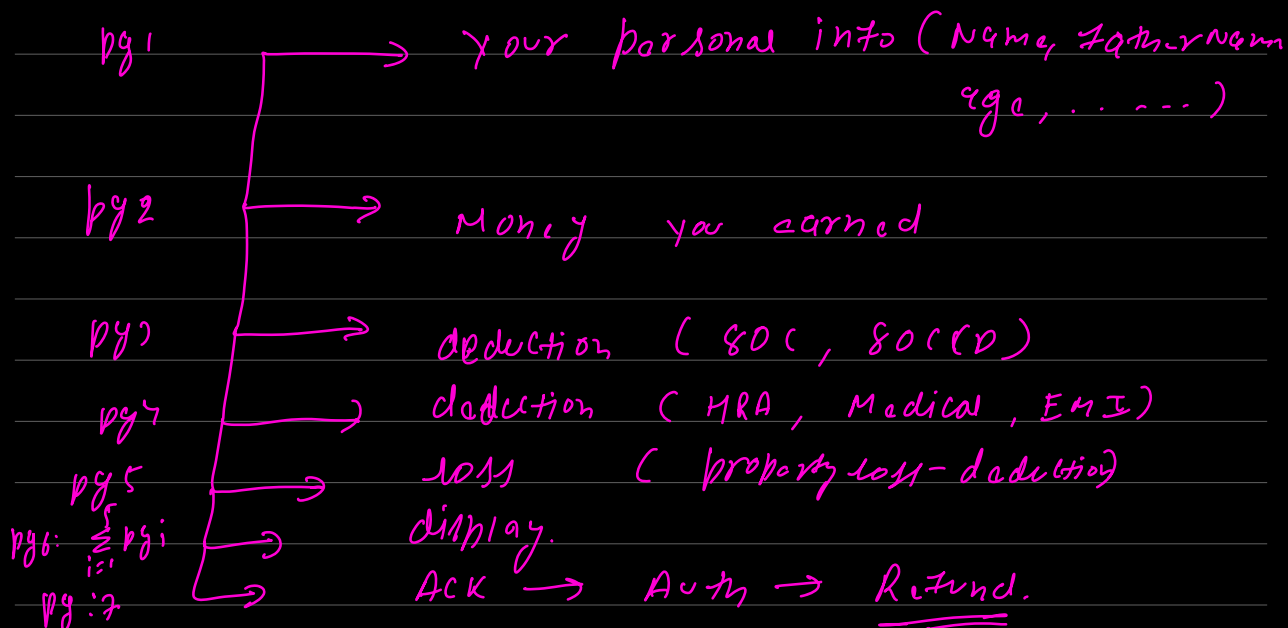 pg1 → Your personal info (Name, Father Name
age, . . - - - )
pg2 → Money you earned
pg3 → deduction ( 80C, 80CCD)
pg4 → deduction ( HRA, Medical, EMI)
pg5 → loss ( property loss - deduction)
pg6: 5 Σ i=1 pgi → display.
pg:7 → ACK → Auth → Refund.